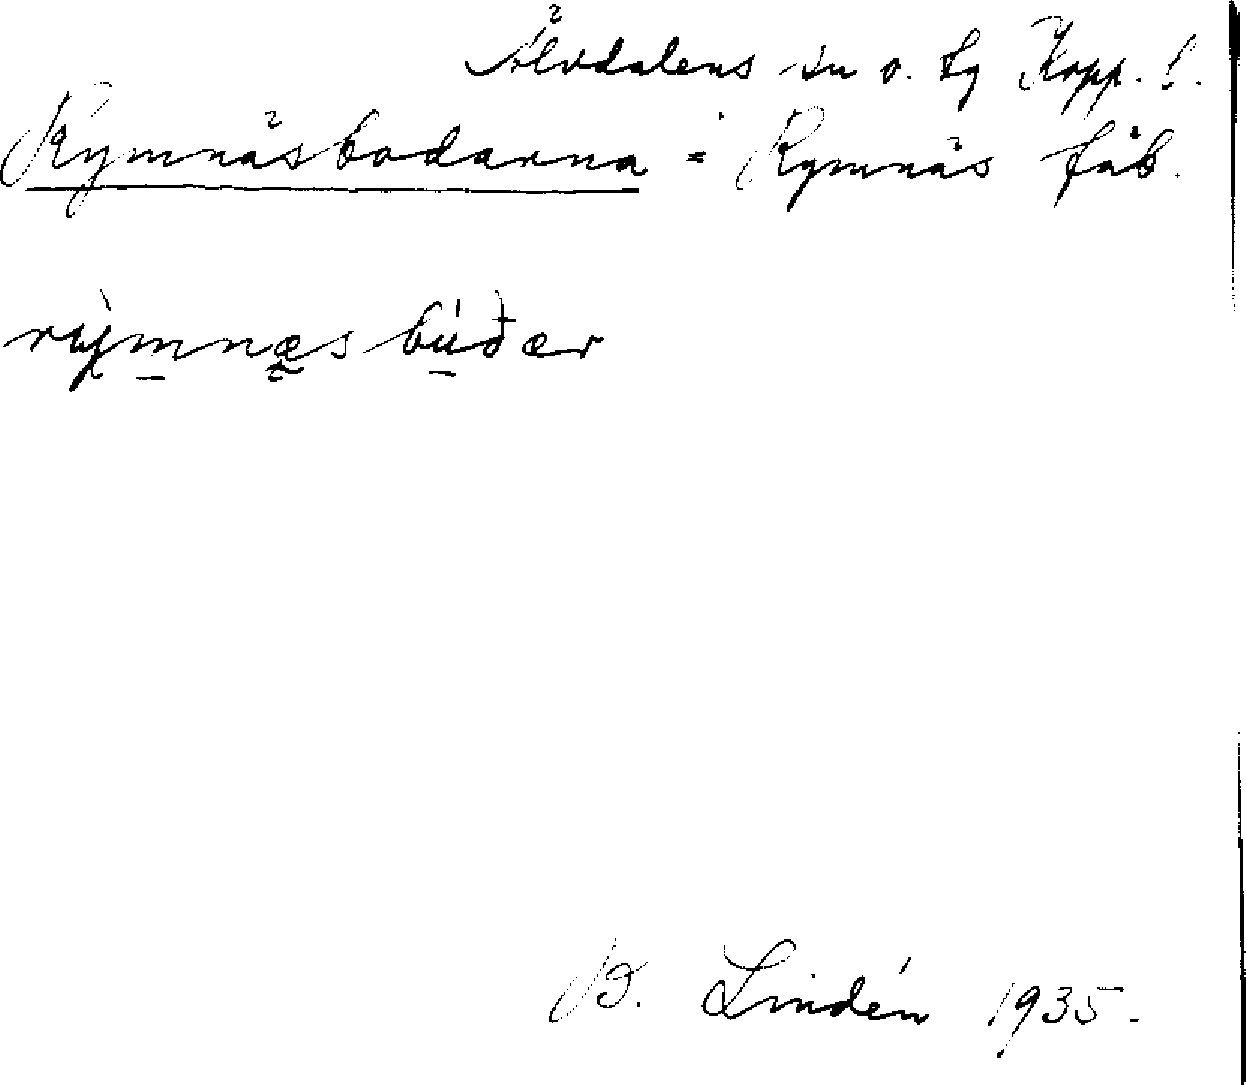 Älvdalens sn o. tg Kopp. l.
Rymnäsbodarna = Rymnäs fäb.
rymnæs buðær
B. Lindén 1935.